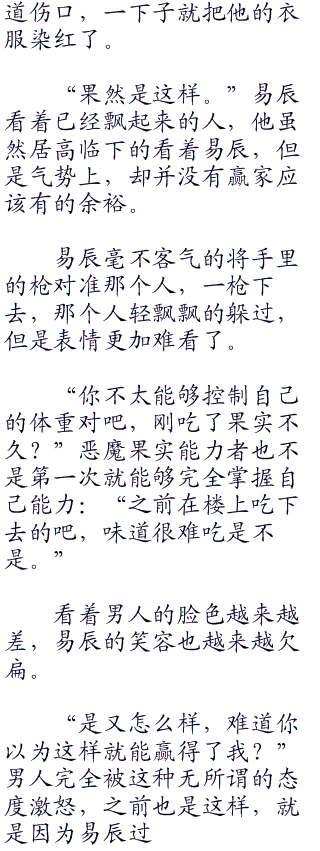 道伤口，一下子就把他的衣
服染红了。
“果然是这样。”易辰
看着已经飘起来的人，他虽
然居高临下的看着易辰，但
是气势上，却并没有赢家应
该有的余裕。
易辰毫不客气的将手里
的枪对准那个人，一枪下
去，那个人轻飘飘的躲过，
但是表情更加难看了。
“你不太能够控制自己
的体重对吧，刚吃了果实不
久？”恶魔果实能力者也不
是第一次就能够完全掌握自
己能力：“之前在楼上吃下
去的吧，味道很难吃是不
是。”
看着男人的脸色越来越
差，易辰的笑容也越来越欠
扁。
“是又怎么样，难道你
以为这样就能赢得了我？”
男人完全被这种无所谓的态
度激怒，之前也是这样，就
是因为易辰过